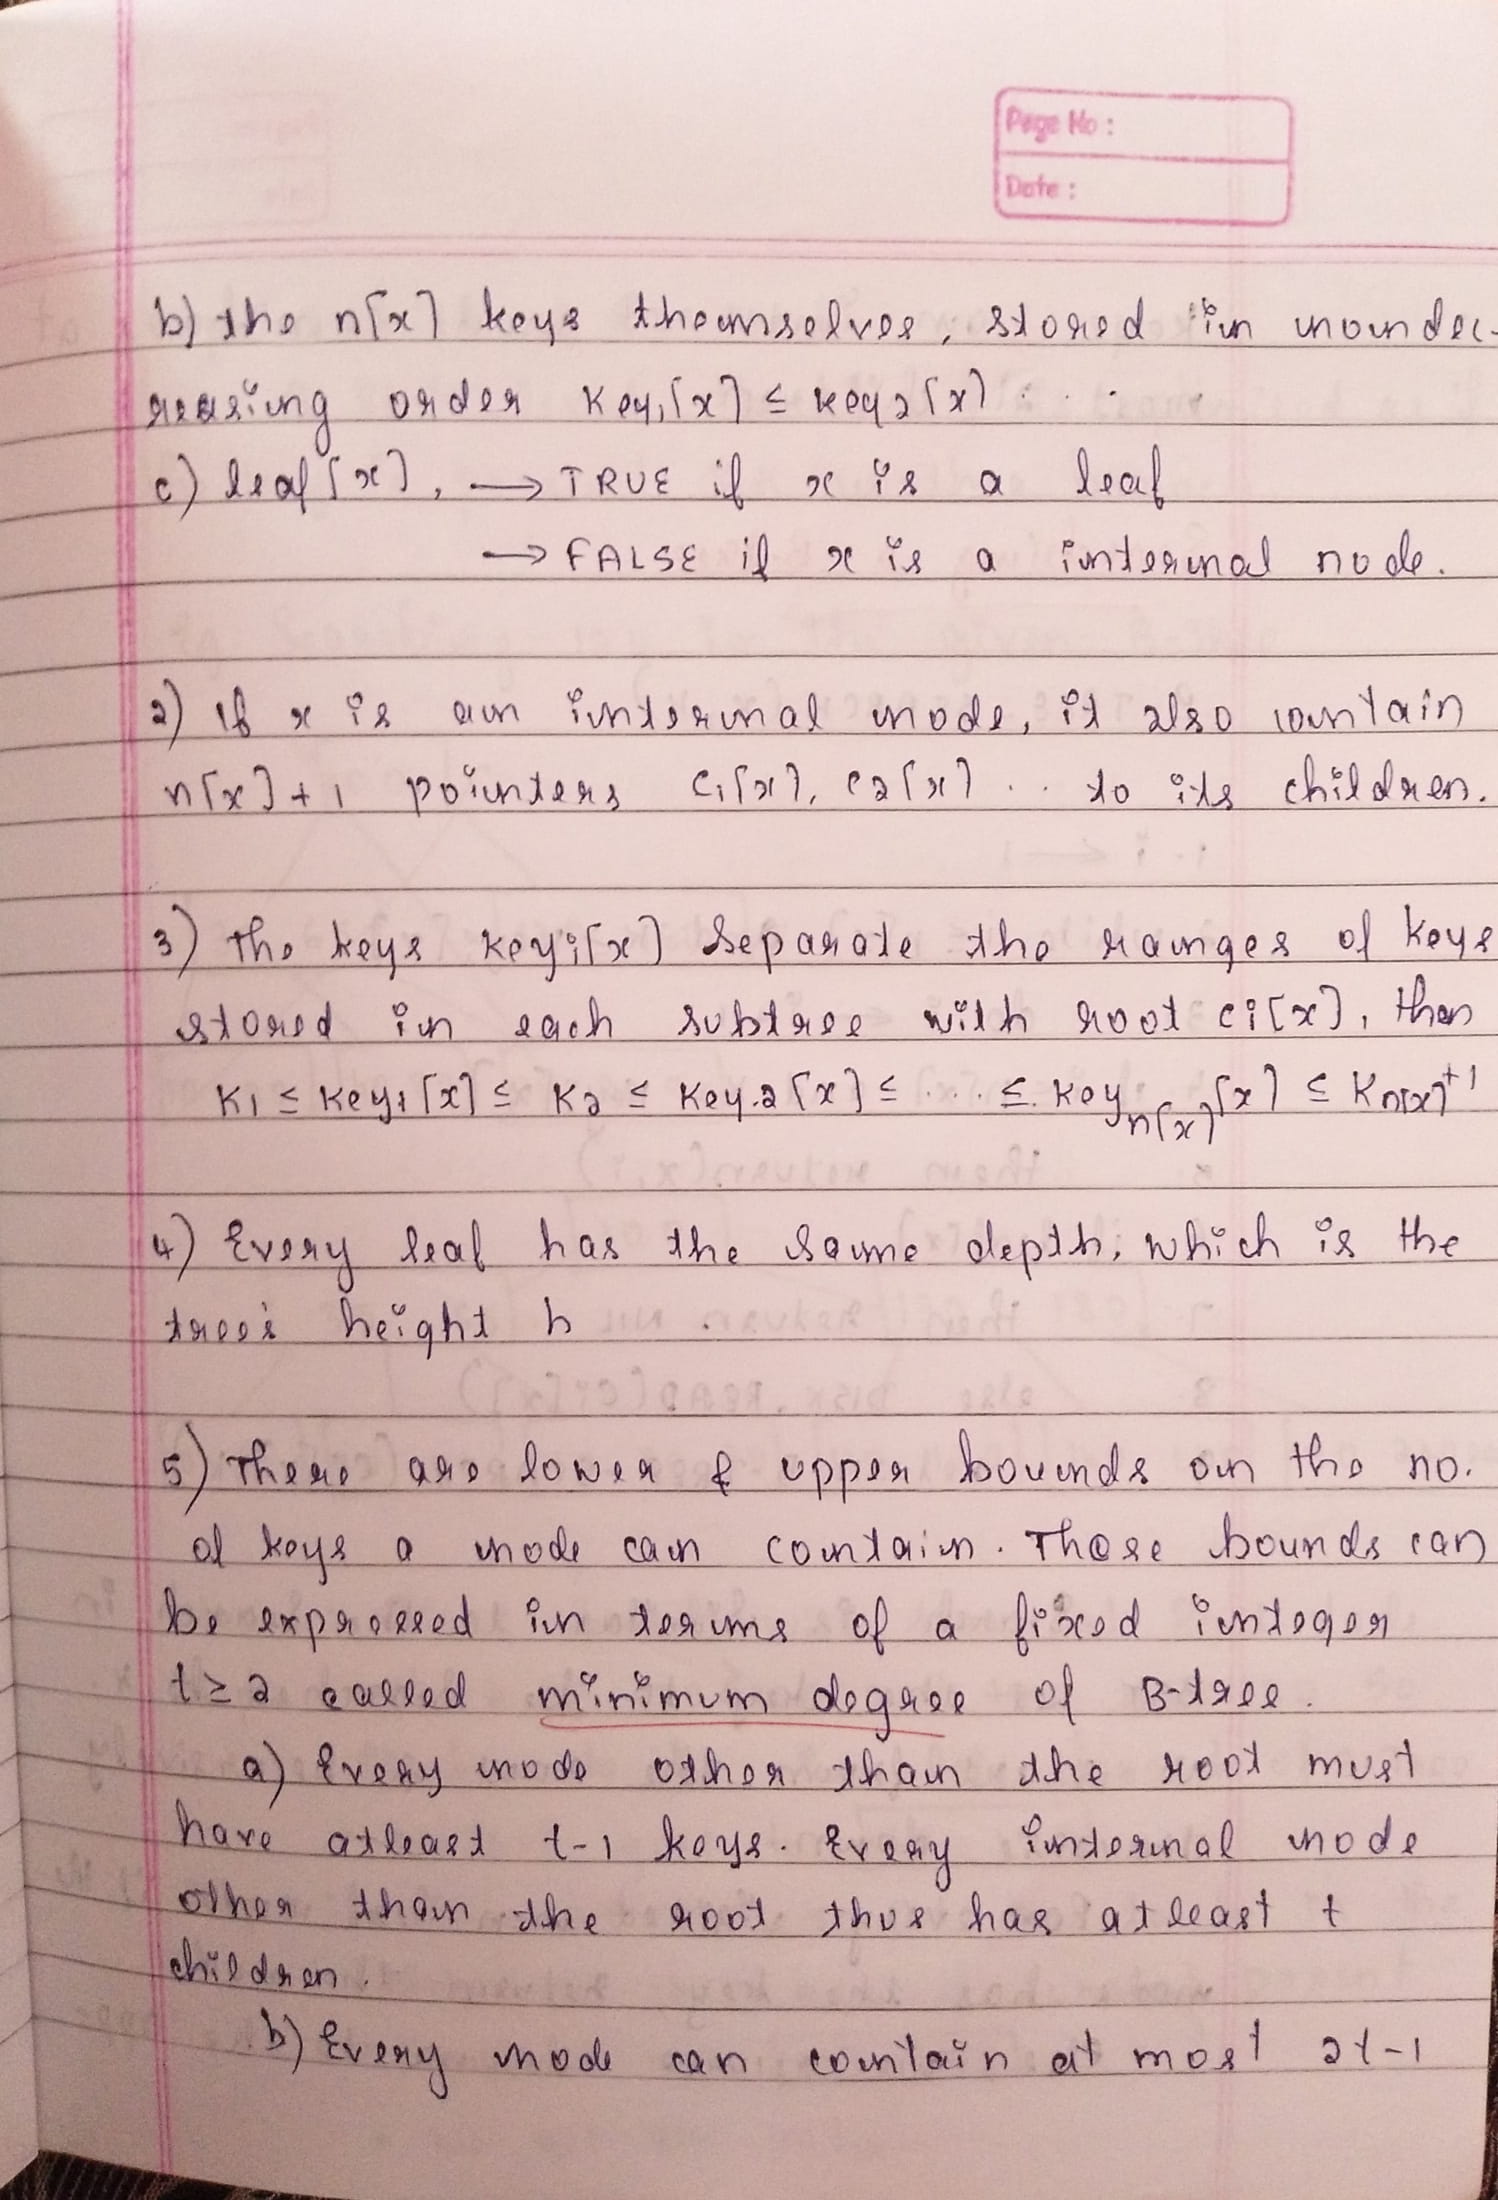 Page No :
Date :
b) the n[x] keys themselves, stored in nondec-
reasing order key₁[x] ≤ key₂[x] . . .
c) leaf[x], → TRUE if x is a leaf
→ FALSE if x is a internal node.
2) If x is an internal node, it also contain
n[x]+1 pointers c₁[x], c₂[x] . . to its children.
3) The keys keyᵢ[x] separate the ranges of keys
stored in each subtree with root cᵢ[x], then
K₁ ≤ key₁[x] ≤ K₂ ≤ key₂[x] ≤ . . . ≤ key_n[x][x] ≤ K_n[x]+1
4) Every leaf has the same depth, which is the
tree's height h
5) There are lower & upper bounds on the no.
of keys a node can contain. These bounds can
be expressed in terms of a fixed integer
t ≥ 2 called minimum degree of B-tree.
a) Every node other than the root must
have atleast t-1 keys. Every internal node
other than the root thus has atleast t
children.
b) Every node can contain at most 2t-1